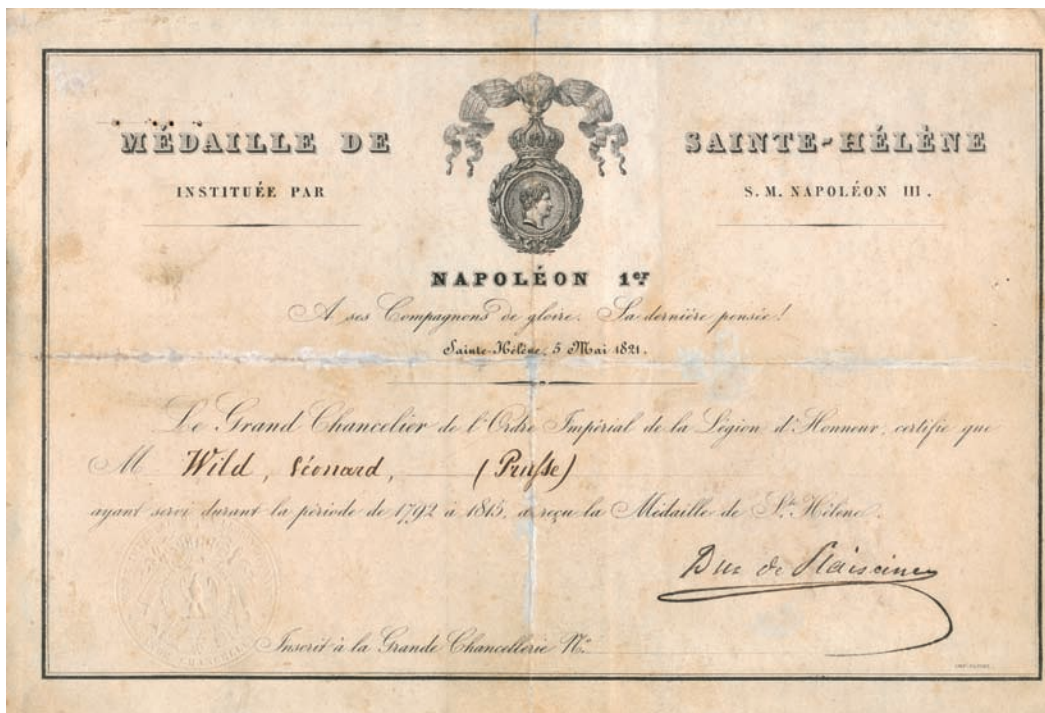 MÉDAILLE DE SAINTE-HÉLÈNE
INSTITUÉE PAR S. M. NAPOLÉON III.
NAPOLÉON 1er
A ses Compagnons de gloire. Sa dernière pensée!
Sainte-Hélène, 5 Mai 1821.
Le Grand Chancelier de l'Ordre Impérial de la Légion d'Honneur, certifie que
M Wild, Léonard, (Prusse)
ayant servi durant la période de 1792 à 1815, a reçu la Médaille de Ste Hélène.
Duc de Plaisance
Inscrit à la Grande Chancellerie No.